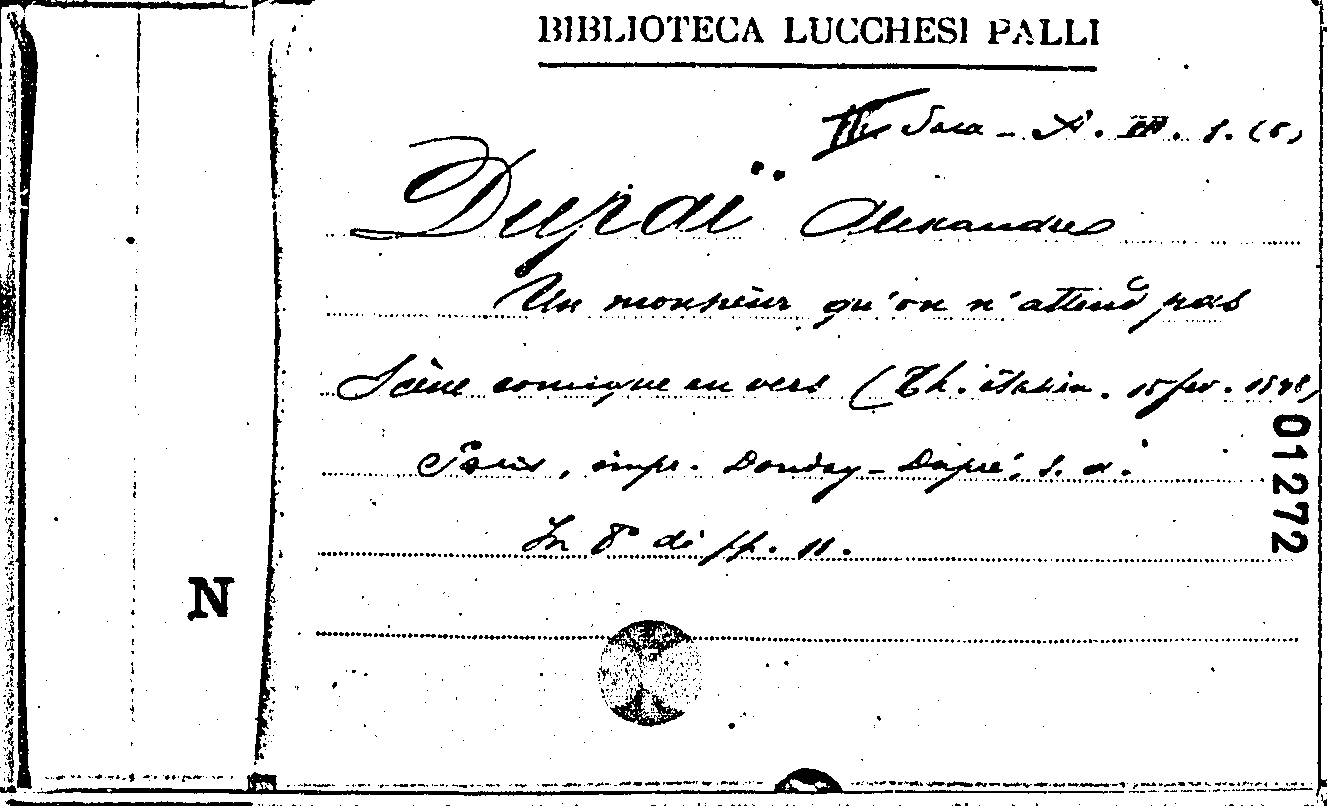 BIBLIOTECA LUCCHESI PALLI
Sala - A. VII. 8. (5)
Dupaï Alexandre
Un monsieur qu'on n'attend pas
Scène comique en vers (Th. italien. 15 fev. 1898)
Paris, impr. Dondey-Dupré, s. a.
In 8° di pp. 11.
01272
N